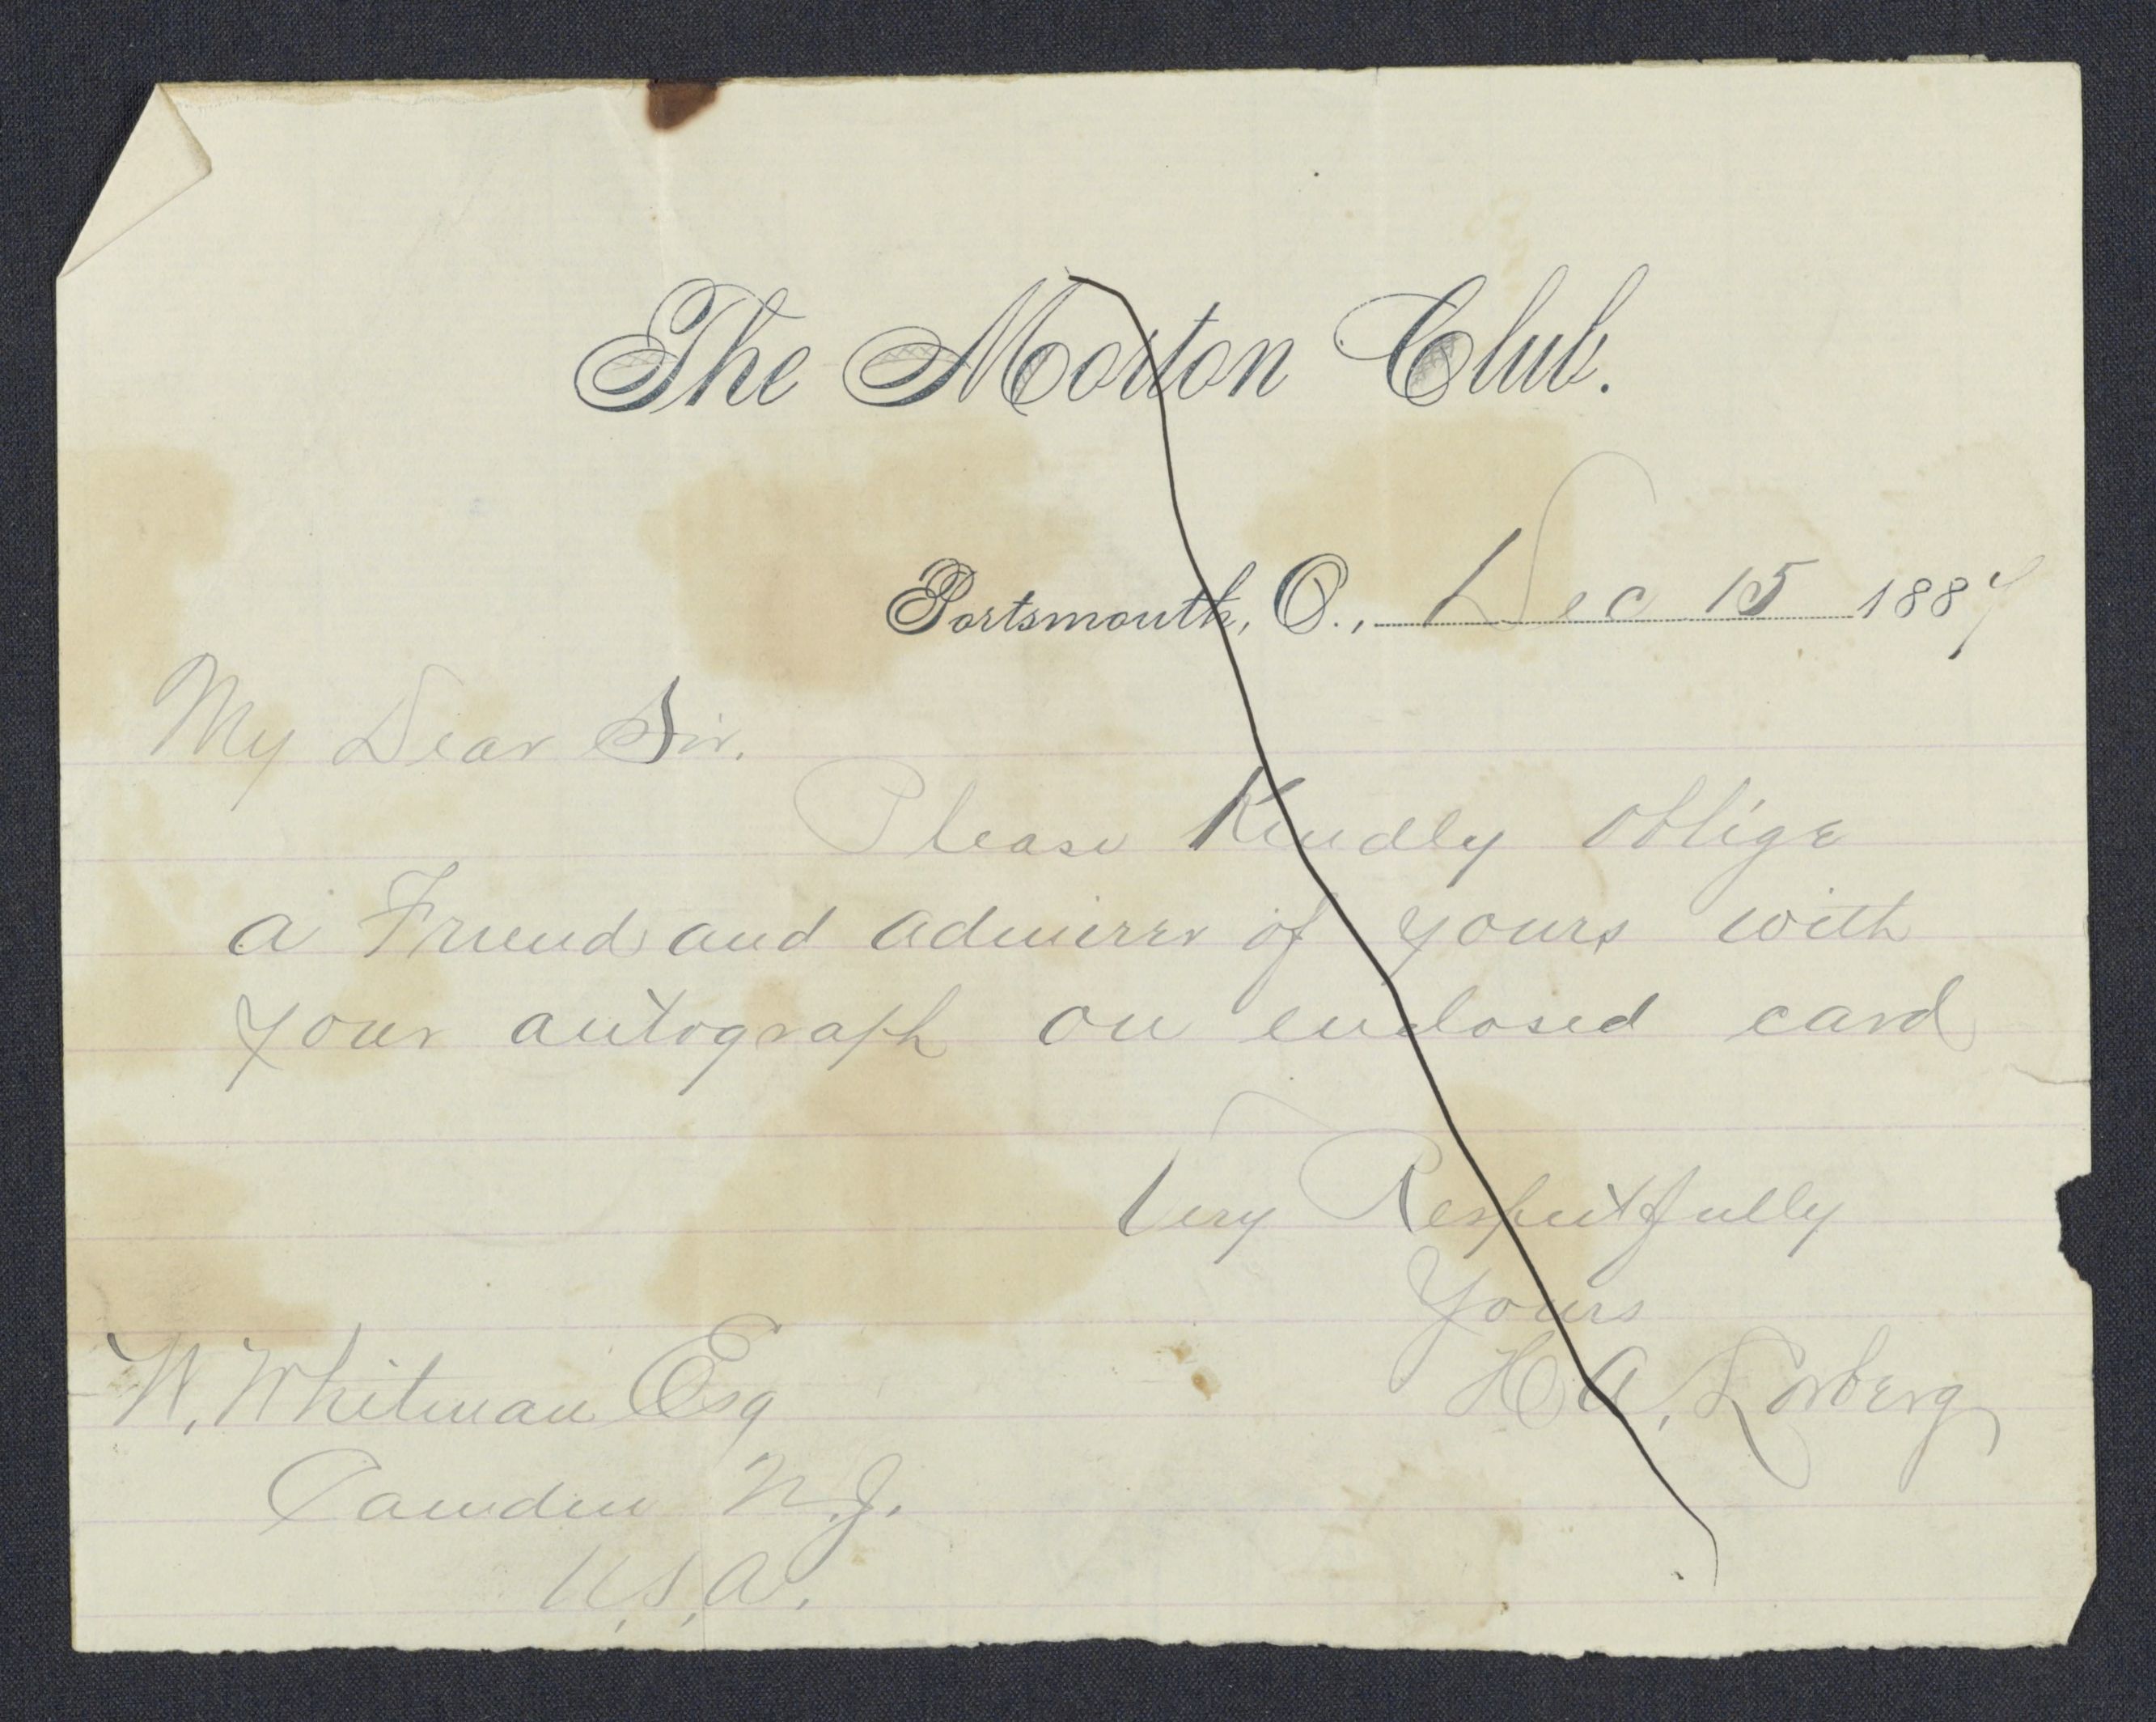 The Morton Club.
Portsmouth, O., Dec 15 1887
My Dear Sir.
Please Kindly oblige
a Friend and admirer of yours with
your autograph on enclosed card
Very Respectfully
Yours
H. A. Lorberg
W. Whitman Esq
Camden N.J.
U.S.A.